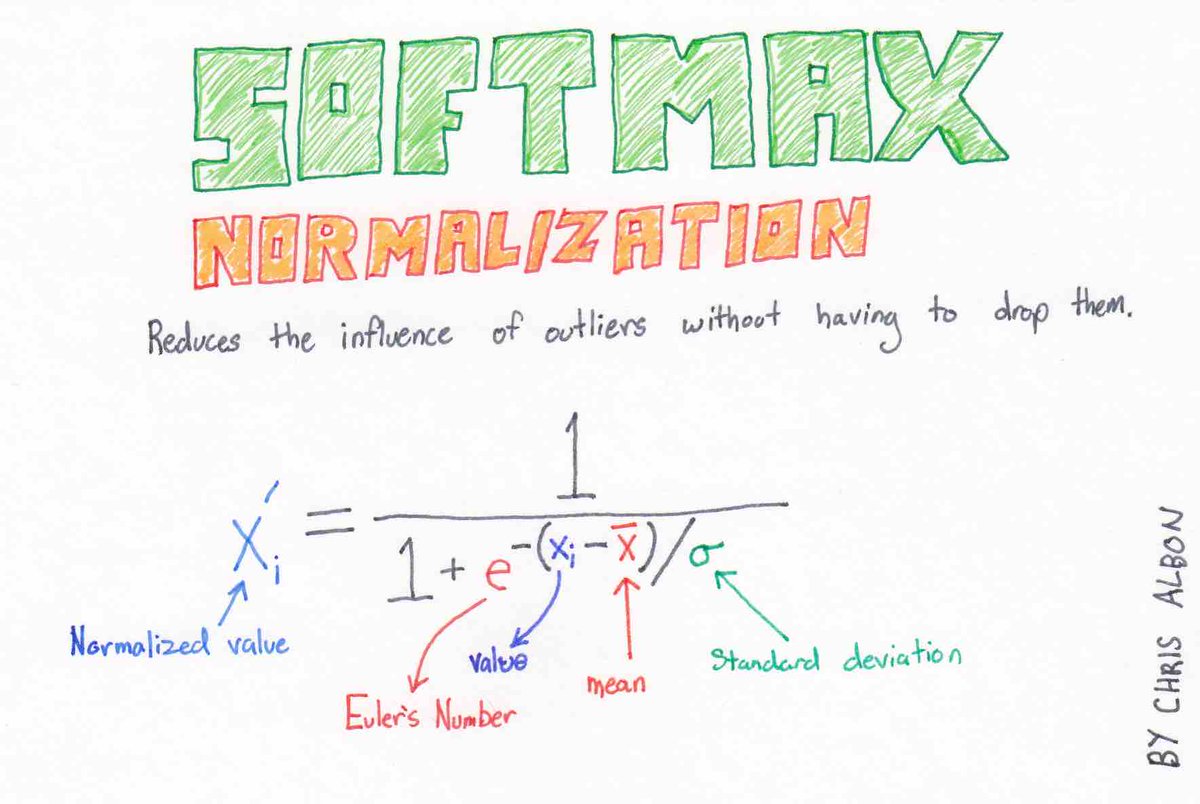 SOFTMAX
NORMALIZATION
Reduces the influence of outliers without having to drop them.
x′ᵢ = 1 / (1 + e^(-(xᵢ - x̄)/σ))
Normalized value
Euler's Number
value
mean
Standard deviation
BY CHRIS ALBON